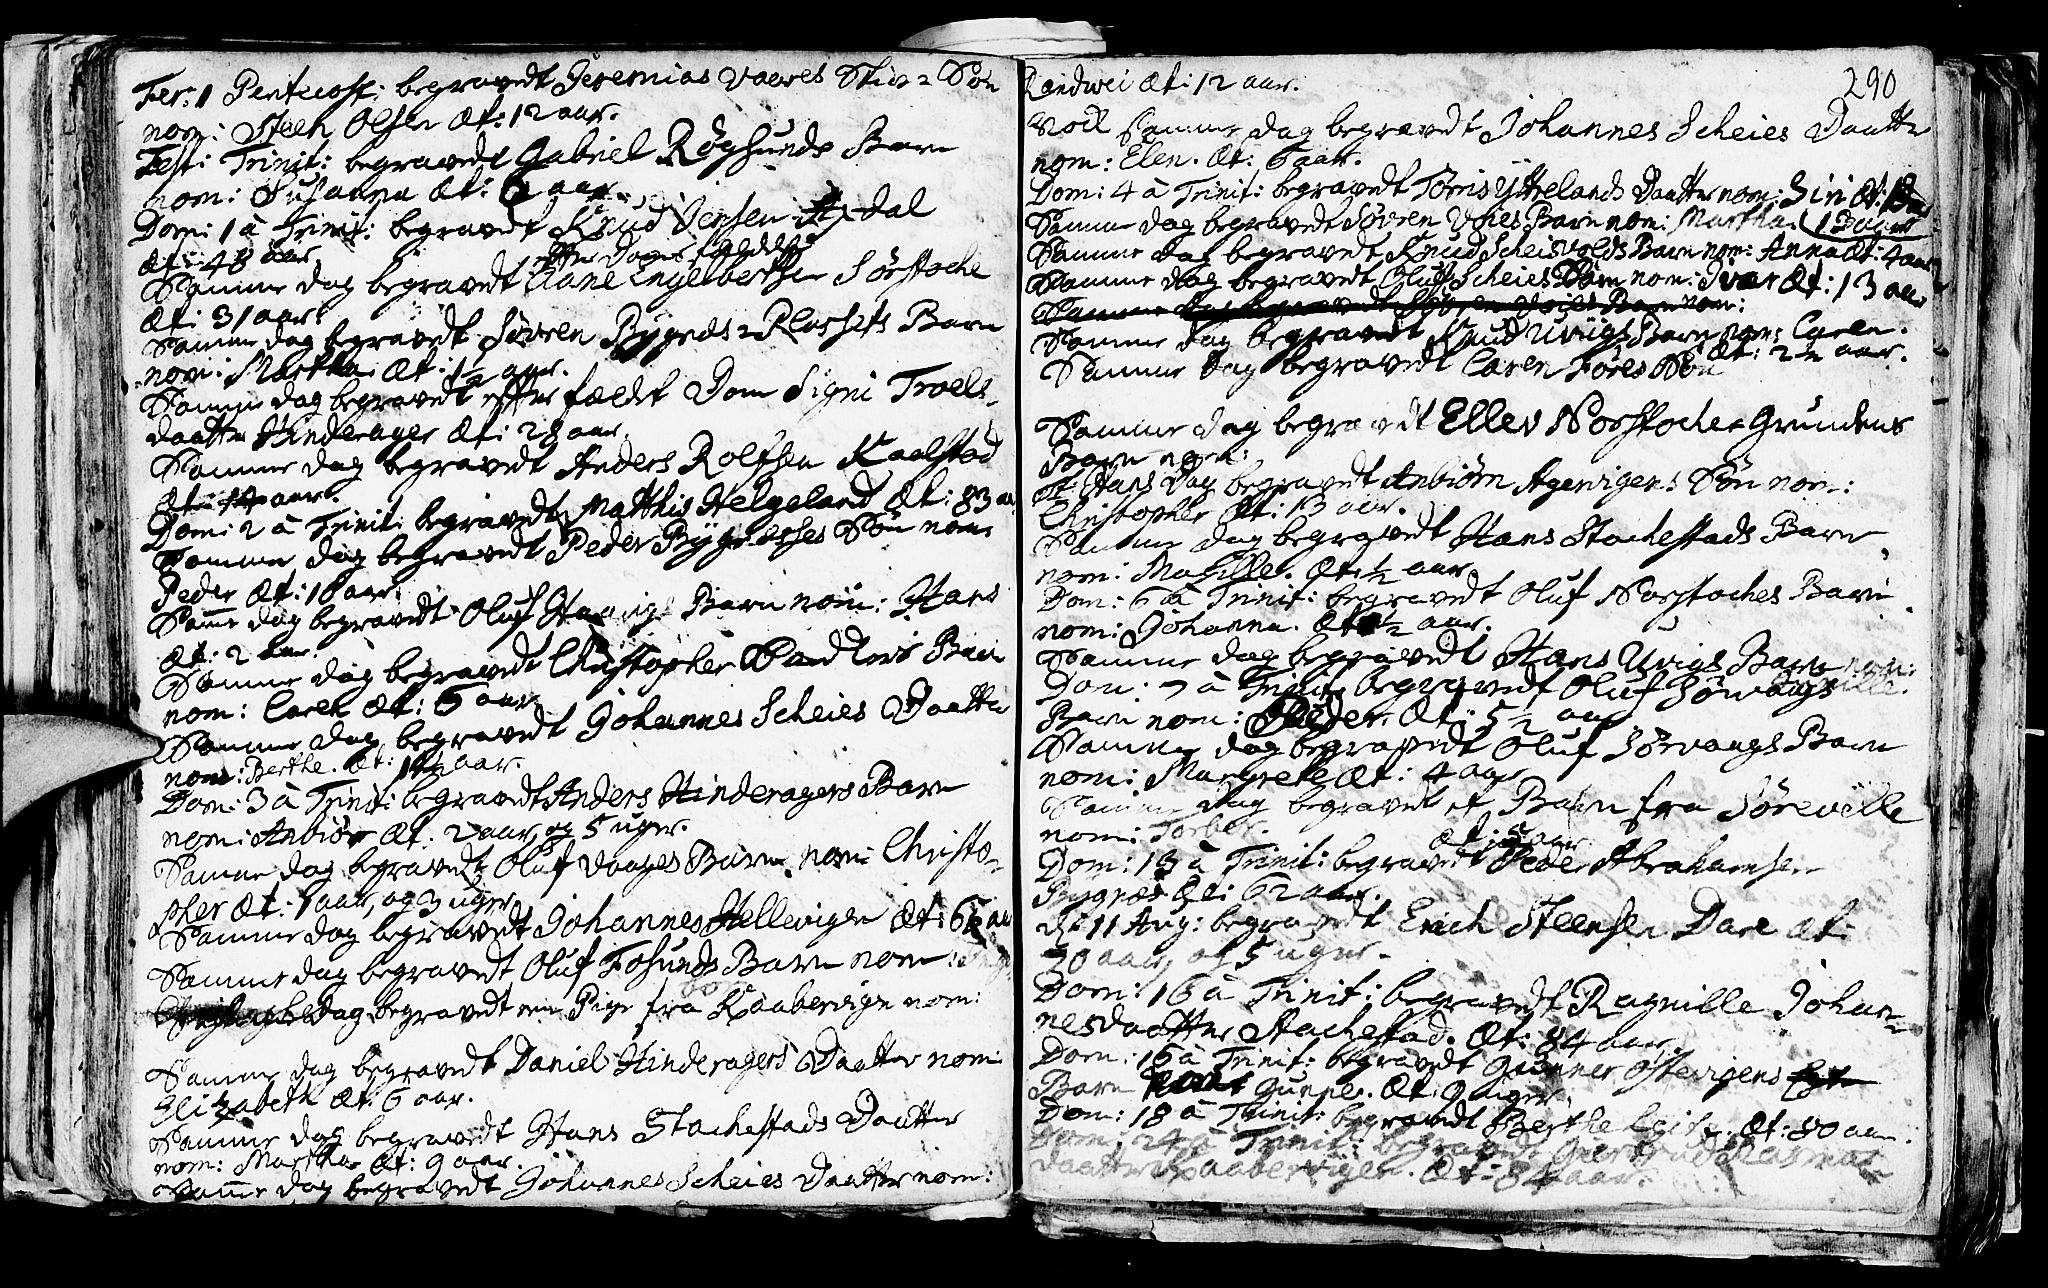 Fer: 1 Pentecost: begravedt Jeremias Vaeres Søn
nom: Steen Olsen Æt: 12 aar.
Fest: Trinit: begravedt Gabriel Røgsunds Barn
nom: Susanna Æt: 6 aar.
Dom: 1 à Trinit: begravedt Knud Jensen Dal
Æt: 48 aar.
Samme dag begravedt Engelbertsen Sørstoche
Æt: 31 aar.
Samme dag begravedt Søvren Bygnes Barn
nom: Martha Æt: 1½ aar.
Samme dag begravedt efter fældt Dom Signi Troels-
daatter Hinderager Æt: 28 aar.
Samme dag begravedt Anders Rolfsen Kaalstad
Æt: aar.
Dom: 2 à Trinit: begravedt Matthis Helgeland Æt: 83 aar
Samme dag begravedt Peder Bygnesses Søn nom:
Peder Æt: 10 aar.
Samme dag begravedt Oluf Barn nom: Hans
Æt: 2 aar.
Samme dag begravedt Christopher Barn
nom: Caren Æt: 5 aar
Samme dag begravedt Johannes Scheies Daatter
nom: Berthe. Æt: aar.
Dom: 3 à Trinit: begravedt Anders Hinderagers Barn
nom: Anbiør Æt: 2 aar, og 5 uger.
Samme dag begravedt Oluf Vaages Barn nom: Christo-
pher Æt: 1 aar, og 3 uger
Samme dag begravedt Johannes Hellevigen Æt: aar
Samme dag begravedt Oluf Fosunds Barn nom:
Dag begravedt en Pige fra Kaabervigen nom:
Samme dag begravedt Daniel Hinderagers Daatter nom:
Elizabeth Æt: 6 aar.
Samme dag begravedt Hans Stachestads Daatter
nom: Martha Æt: 9 aar.
Samme dag begravedt Johannes Scheies Daatter nom:
290
Randvei Æt: 12 aar.
Nock samme dag begravedt Johannes Scheies Daatter
nom: Elen. Æt: 6 aar.
Dom: 4 à Trinit: begravedt Tøris Ytrelands Daatter nom: Siri Æt:
Samme dag begravedt Søvren Barn nom: Martha.
Samme dag begravedt Knud Scheisvolds Barn nom: Anna Æt: 4 aar
Samme dag begravedt Oluf Scheies Barn nom: Iver Æt: 13 aar
Samme dag begravedt Søvren Barn nom:
Samme dag begravedt Knud Uvigs Barn nom: Caren.
Æt: 2½ aar.
Samme dag begravedt Caren Føres Søn
Samme dag begravedt Ellev Norstoche Grundens
Barn nom:
St Hans Dag begravedt Anbiørn Agervigens Søn nom:
Christopher Æt: 13 aar.
Samme dag begravedt Hans Stachestads Barn
nom: Magille. Æt ½ aar
Dom: 6 à Trinit: begravedt Oluf Norstoches Barn
nom: Johanna. Æt ½ aar.
Samme dag begravedt Hans Uvigs Barn nom:
Dom: 7 à Trinit: begravedt Oluf Sørvaags
Barn nom: Peder. Æt: 5½ aar
Samme dag begravedt Oluf Sørvaags Barn
nom: Margrete Æt: 4 aar
Samme dag begravedt et Barn fra Søreville
nom: Torber. Æt: 5 aar
Dom: 13 à Trinit: begravedt Peder Abrahamsen
Bygnes Æt: 62 aar.
d: 11 Aug: begravedt Erich Steensen Dale Æt:
30 aar, og 5 uger.
Dom: 16 à Trinit: begravedt Ragnille Johan-
nesdaatter Stachestad. Æt: 84 aar
Dom: 16 à Trinit: begravedt Gunner Østevigens
Barn nom: Gunner. Æt: 9 uger.
Dom: 18 à Trinit: begravedt Berthe Æt: 80 aar.
Dom: 24 à Trinit: begravedt Rasmus-
daatter Kaabervigen. Æt: 84 aar.